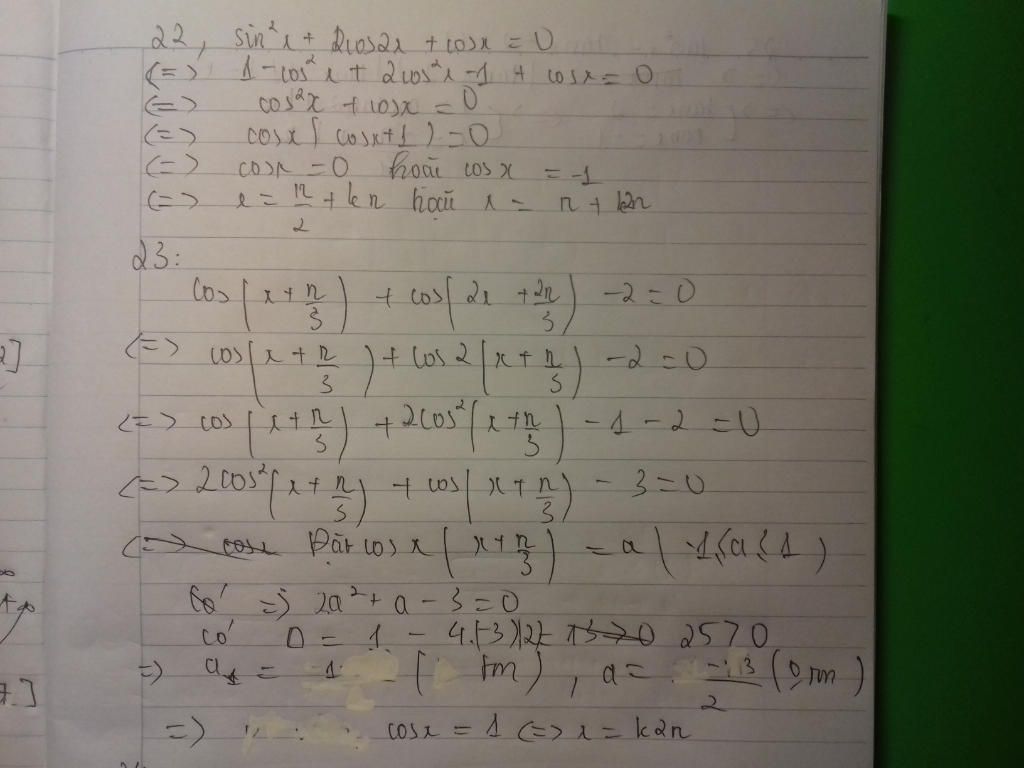 22, sin²x + 2cos2x + cosx = 0
<=> 1 - cos²x + 2cos²x - 1 + cosx = 0
<=> cos²x + cosx = 0
<=> cosx(cosx+1) = 0
<=> cosx = 0 hoặc cosx = -1
<=> x = π/2 + kπ hoặc x = π + k2π
23:
cos(x + π/3) + cos(2x + 2π/3) - 2 = 0
<=> cos(x + π/3) + cos2(x + π/3) - 2 = 0
<=> cos(x + π/3) + 2cos²(x + π/3) - 1 - 2 = 0
<=> 2cos²(x + π/3) + cos(x + π/3) - 3 = 0
Đặt cosx(x + π/3) = a (-1≤a≤1)
Có => 2a² + a - 3 = 0
có Δ = 1 - 4.(-3)(2) = 25 > 0
=> a₁ = 1 (tm), a = -3/2 (0 tm)
=> cosx = 1 <=> x = k2π